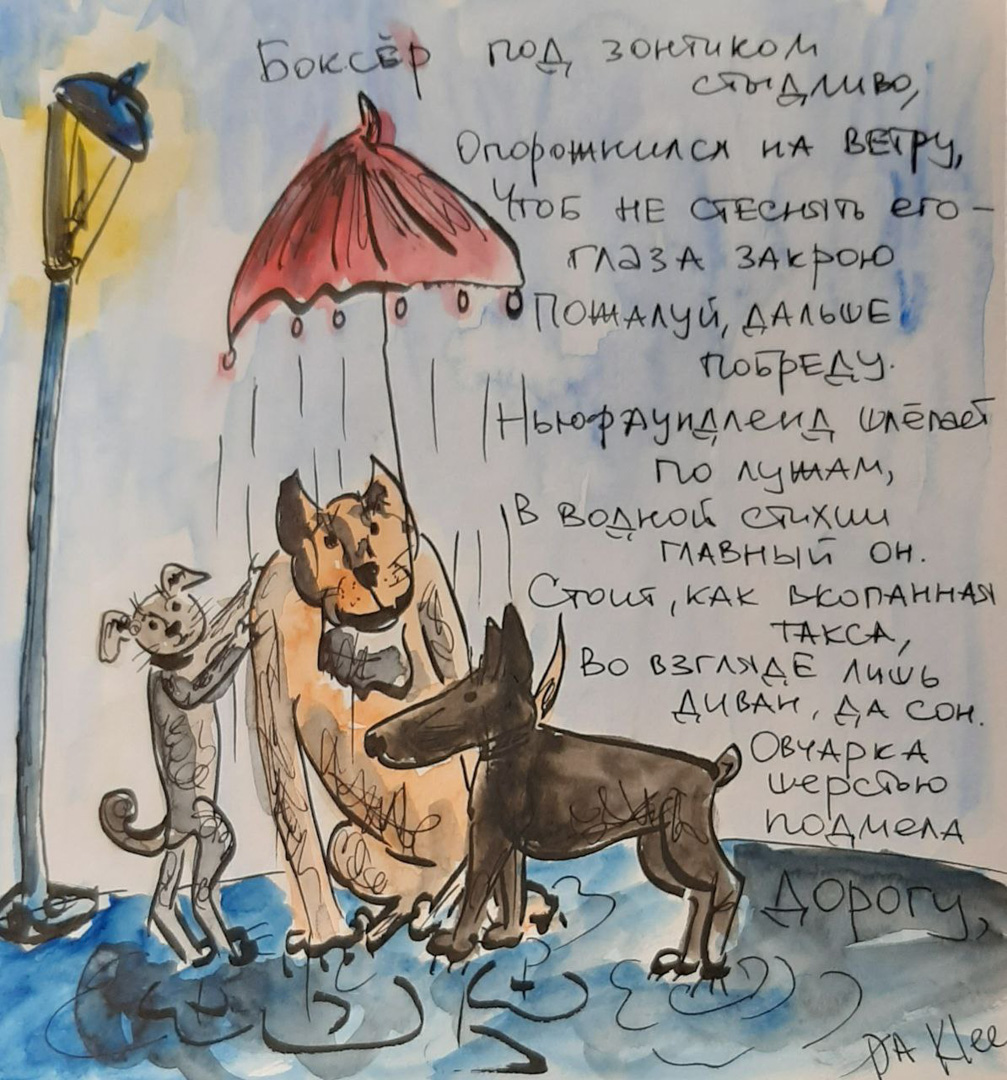 Боксёр под зонтиком
стыдливо,
Опорожнился на ветру,
Чтоб не стеснять его -
глаза закрою
Пожалуй, дальше
побреду.
Ньюфаундленд шлёпает
по лужам,
В водной стихии
главный он.
Стоит, как вкопанная
такса,
Во взгляде лишь
диван, да сон.
Овчарка
шерстью
подмела
дорогу,
DA Klee